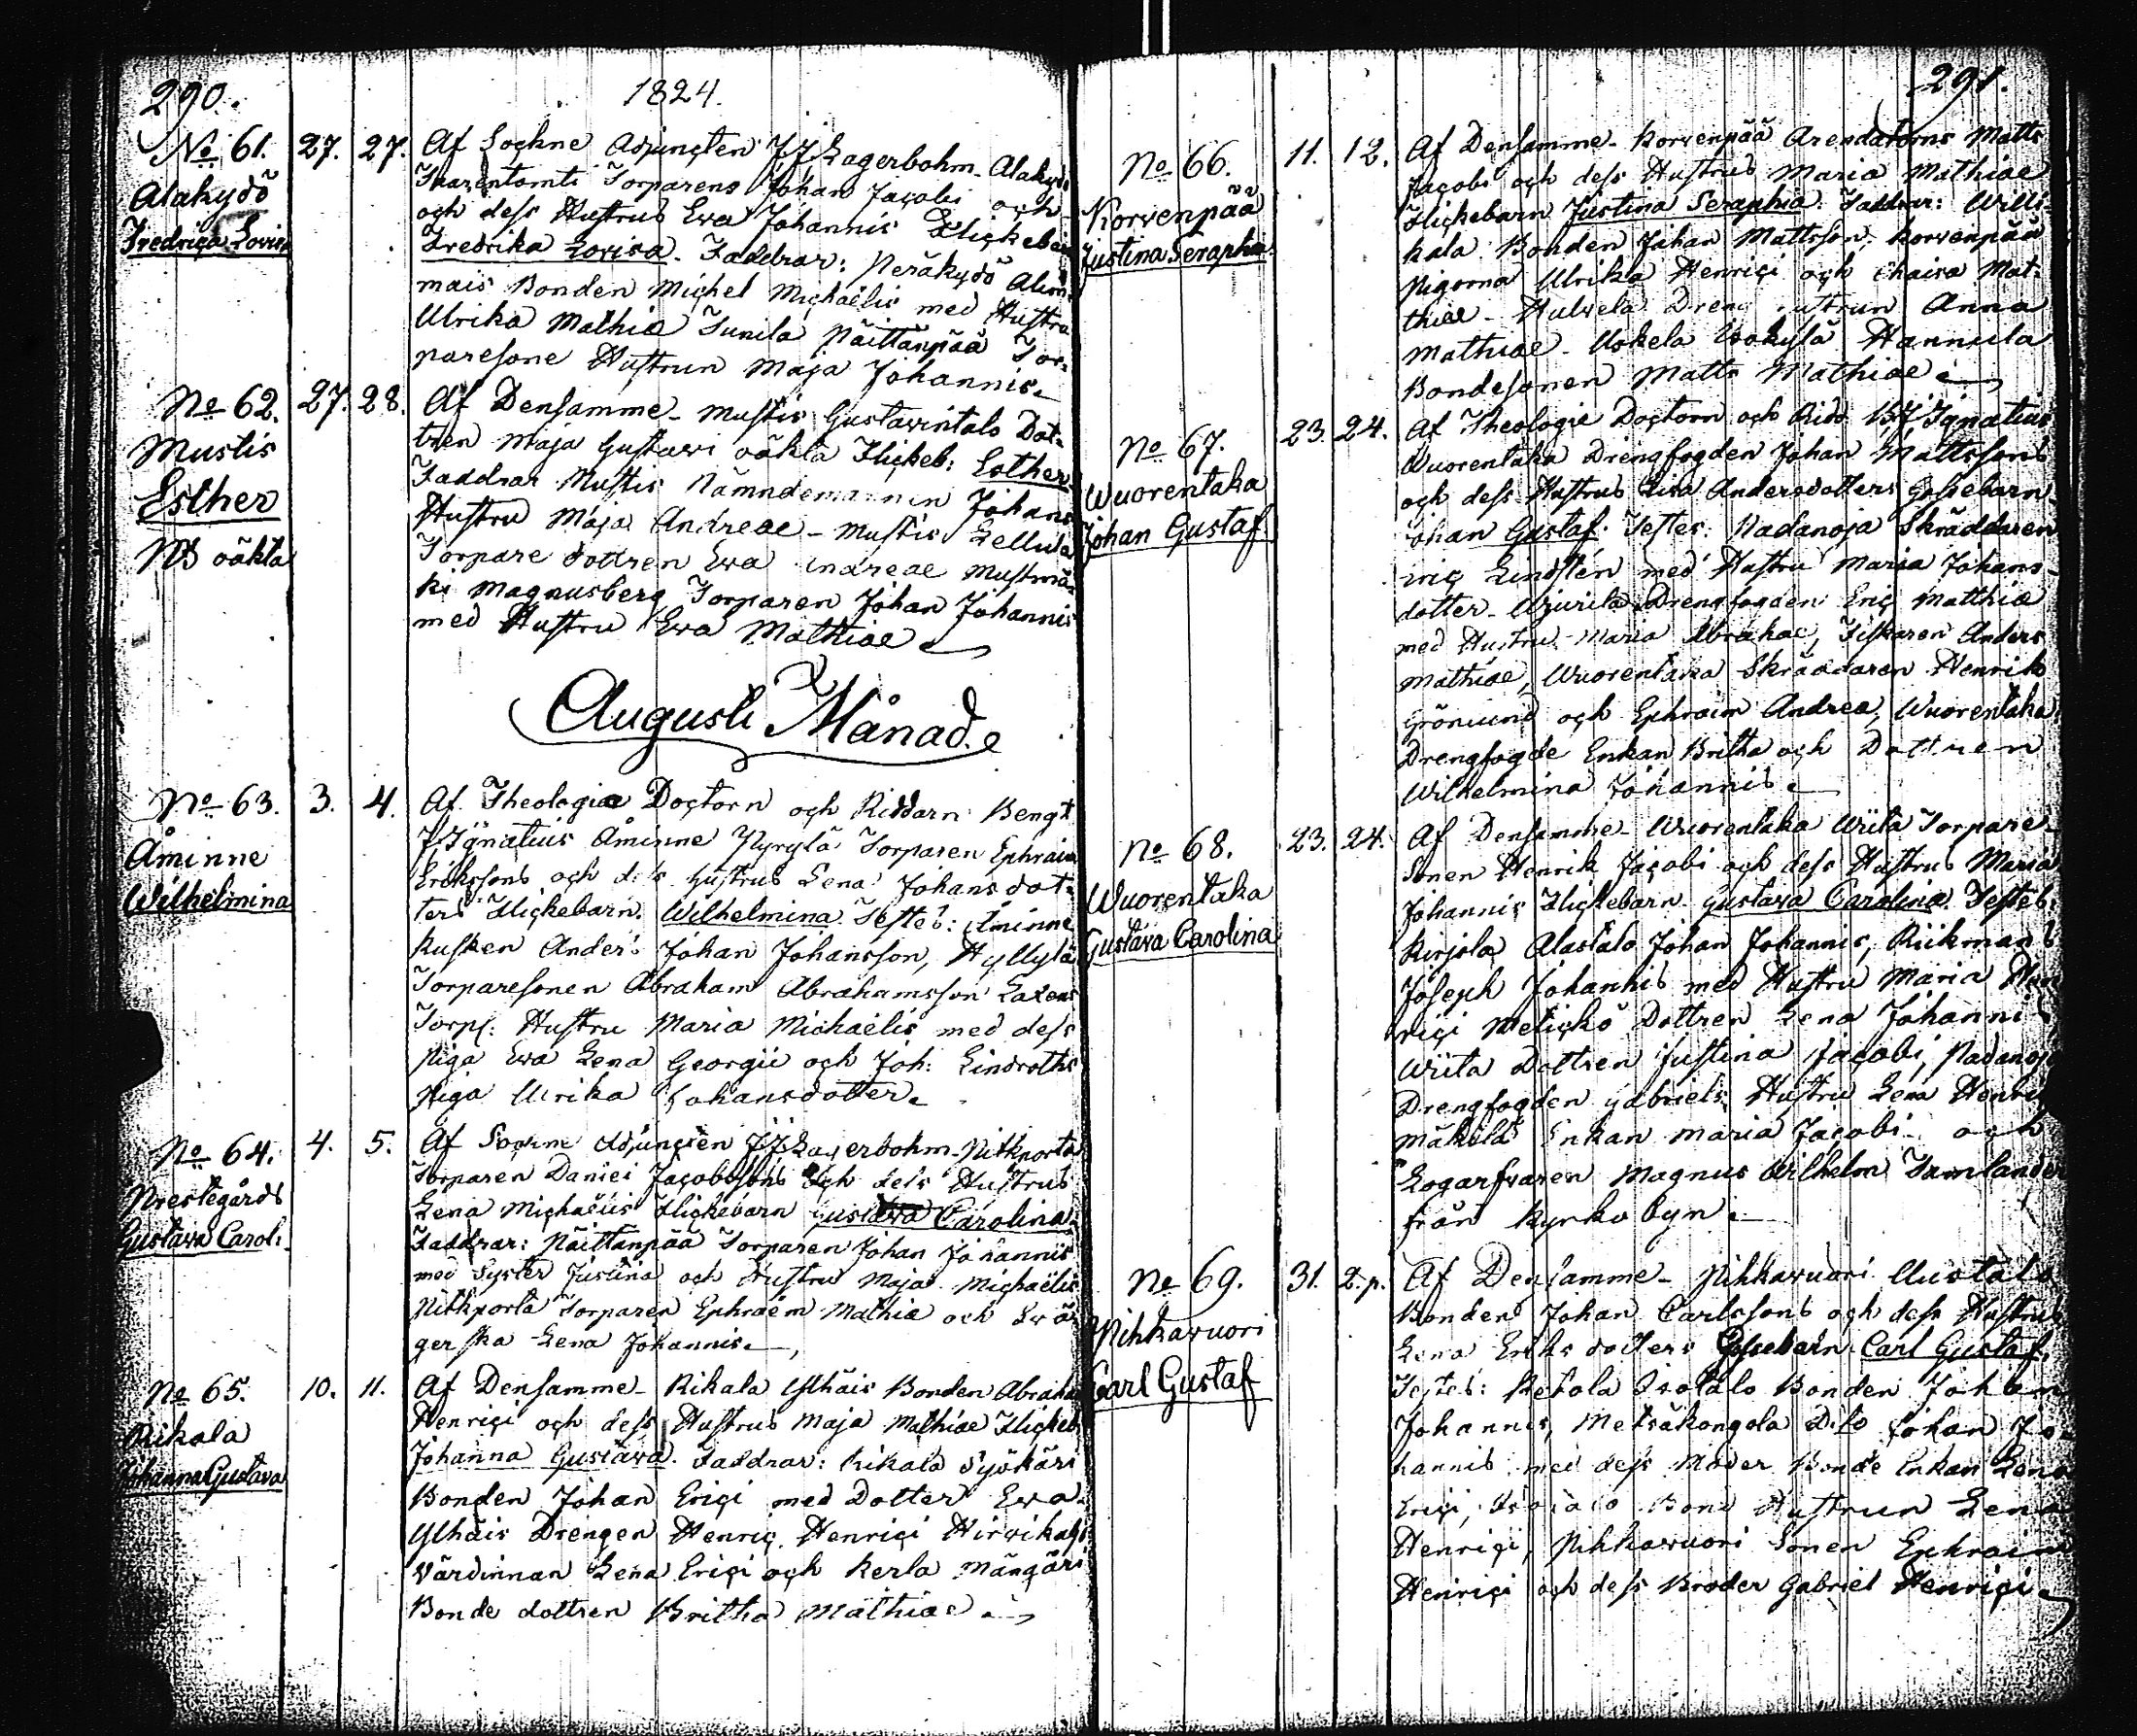 290.
1824.
No 61. 27. 27. Af Sockne Adjuncten J J Lagerbohm. Alakydö
Alakydö
Torparens Johan Jacobi och
Fredrica Lovisa
och dess Hustrus Ewa Johannis Flickebarn
Fredrika Lovisa. Faddrar: Peräkydö
mais Bonden Michel Michaelis med Hustru
Ulrika Mathiæ Junila Näittänpää Tor-
paresone Hustrun Maja Johannis.
No 62. 27. 28. Af Densamme. Mustis Gustavintalo Dot-
Mustis
tren Maja Gustawi oäkta Flickeb: Esther.
Esther
Faddrar Mustis Nämndemannen Johans
NB oäkta
Hustru Maja Andreae - Mustis
Torpare dottren Ewa Andreae Mustmä-
ki Magnusberg Torparen Johan Johannis
med Hustru Ewa Mathiae
Augusti Månad.
No 63. 3. 4. Af Theologiæ Doctorn och Riddarn Bengt
J Ignatius Åminne Torparen Ephraim
Åminne
Erikssons och dess Hustrus Lena Johansdot-
Wilhelmina
ters Flickebarn. Wilhelmina. Testes: Åminne
Kusken Anders Johan Johansson, Hyllylä
Torparesonen Abraham Abrahamsson
Torp: Hustru Maria Michaelis med dess
Piga Ewa Lena Georgii och Joh: Lindroths
Piga Ulrika Johansdotter.
No 64. 4. 5. Af Sockne Adjuncten J J Lagerbohm. Nitkporta
Prestegårds
Torparen Daniel Jacobssons och dess Hustrus
Gustava Carol:
Lena Michaelis Flickebarn Gustava Carolina.
Faddrar: Näittänpää Torparen Johan Johannis
med Syster Justina och Hustru Maja Michaelis
Nitkporta Torparen Ephraem Mathiæ och Svä-
gerska Lena Johannis.
No 65. 10. 11. Af Densamme. Rikala Ylhäis Bonden Abraham
Rikala
Henrici och dess Hustrus Maja Mathiae Flickeb:
Johanna Gustava
Johanna Gustava. Faddrar: Rikala Syökäri
Bonden Johan Erici med Dotter Ewa.
Ylhäis Drengen Henric Henrici
Värdinnan Lena Erici och Kerla Mängäri
Bonde dottren Britha Mathiae.
291.
No 66. 11. 12. Af Densamme. Korvenpää Arendatorns Matts
Korvenpää
Jacobs och dess Hustrus Maria Mathiae
Justina Seraphia
Flickebarn Justina Seraphia. Faddrar: Willi-
kala Bonden Johan Mattsson. Korvenpää
Pigorna Ulrika Henrici och Chaisa Mat-
thiae. Dreng Hustrun Anna
Mathiae. Uskela Isokylä Hannula
Bondesonen Matts Mathiae.
No 67. 23. 24. Af Theologie Doctorn och Ridd: B J Ignatius
Wuorentaka Drengfogden Johan Mattssons
Wuorentaka
och dess Hustrus Lisa Andersdotters Gossebarn
Johan Gustaf
Johan Gustaf. Testes: Padanoja Skräddaren
Eric Lindstén med Hustru Maria Johans-
dotter. Drengfogden Eric Matthiæ
med Hustru Maria Abrahae, Fiskaren Anders
Mathiae, Wuorentaka Skräddaren Henrik
Grönlund och Ephraim Andrea, Wuorentaka
Drengfogde Enkan Britha och Dottren
Wilhelmina Johannis.
No 68. 23. 24. Af Densamme. Wuorentaka Wiita Torpare-
Wuorentaka
Sonen Henrik Jacobi och dess Hustrus Maria
Gustava Carolina
Johannis Flickebarn Gustava Carolina. Testes:
Kirjola Alastalo Johan Johannis,
Joseph Johannis med Hustru Maria Hen-
rici Dottren Lena Johannis
Wiita Dottren Justina Jacobi, Padanoja
Drengfogden Gabriels Hustru Lena Henrici
Mäkilä Enkan Maria Jacobi och
Logarfvaren Magnus Wilhelm
från Kyrkobyn.
No 69. 31. 2.p. Af Densamme. Pihkavuori Uustalo
Pihkavuori
Bonden Johan Carlssons och dess Hustrus
Carl Gustaf
Lena Eriksdotters Gossebarn Carl Gustaf.
Testes: Isotalo Bonden Johan
Johannis, Metsäkongola Dito Johan Jo-
hannis med dess Moder Bonde Enkan Lena
Erici, Isotalo Bond Hustrun Lena
Henrici, Pihkavuori Sonen Ephraim
Henrici och dess Broder Gabriel Henrici.